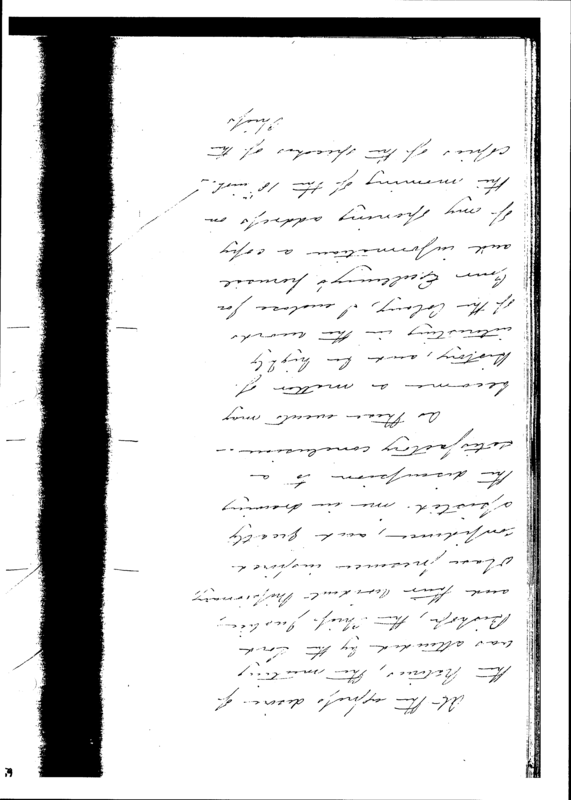 At the express desire of
the Natives, the meeting
was attended by the Lord
Bishop, the Chief Justice,
and their resident Missionary,
whose presence inspired
confidence, and greatly
assisted me in drawing
the discussion to a
satisfactory conclusion.
As these events may
become a matter of
History, and be highly
interesting in the records
of the Colony, I enclose for
Your Excellency's perusal
and information a copy
of my opening address on
the morning of the 18th inst.
Copies of the speeches of the
Chiefs